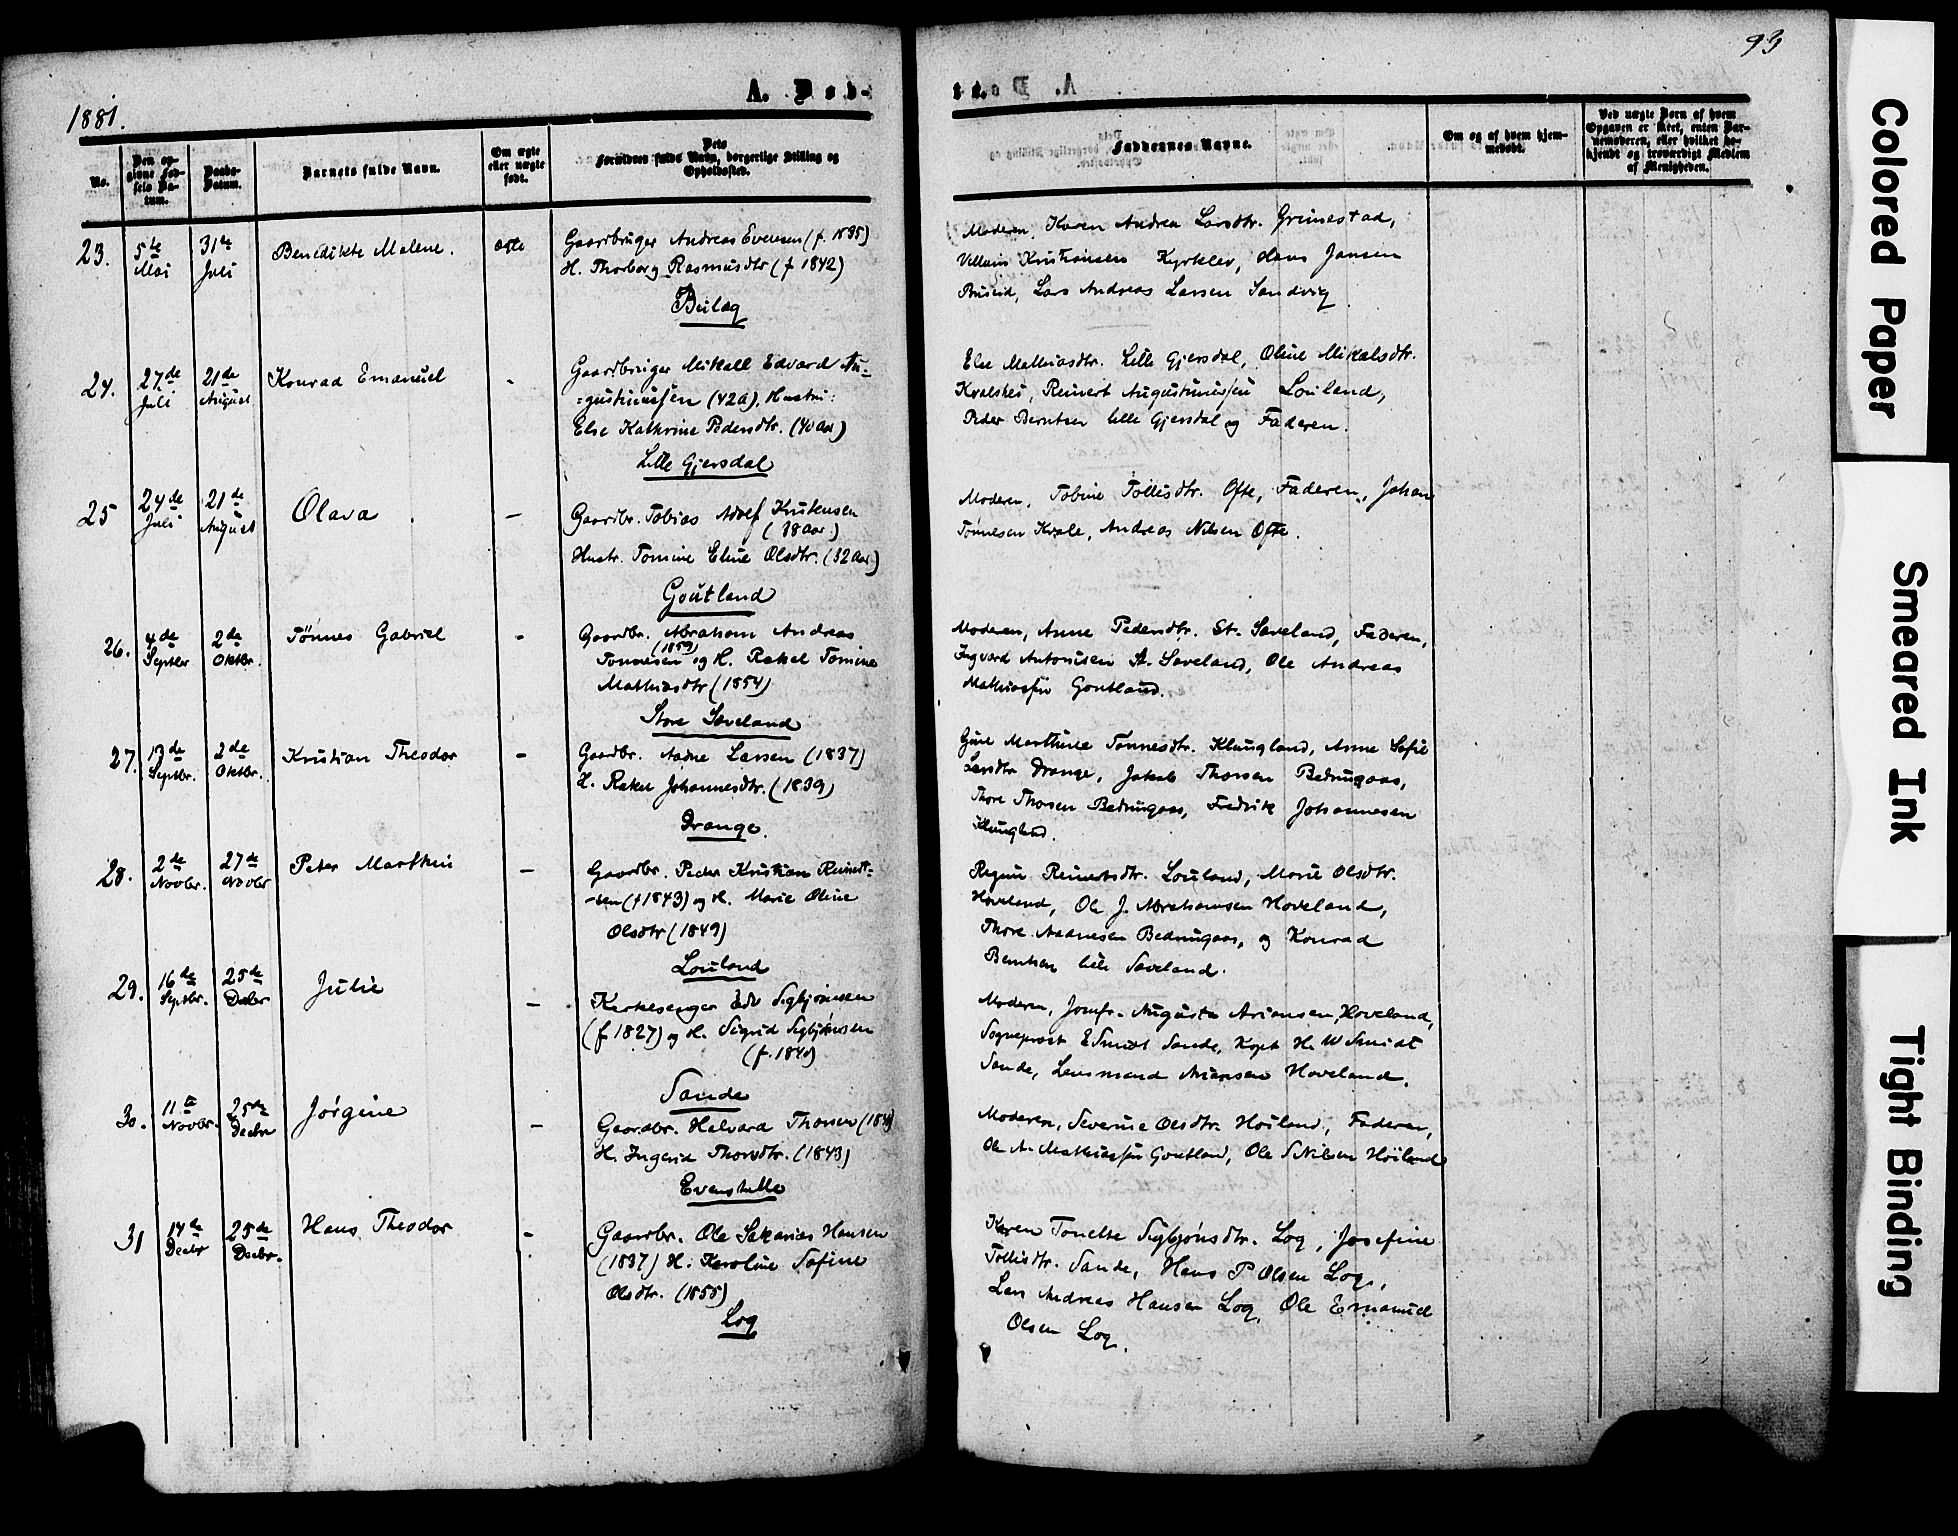 1881.
A. Døb-
No.
Den op-
givne Fød-
sels Da-
tum.
Daabs-
Datum.
Barnets fulde Navn.
Om ægte
eller uægte
født.
Dets
Forældres fulde Navn, borgerlige Stilling og
Opholdssted.
23.
5te
Mai
31te
Juli
Benedikte Malene.
ægte
Gaardbruger Andreas Evensen (f. 1835)
H. Thorborg Rasmusdtr (f 1842)
24.
27de
Juli
21de
August
Konrad Emanuel
Gaardbruger Mikall Edvard Au-
=gustinussen (42 a), Hustru:
Else Kathrine Pedersdtr. (40 Aar)
Lille Gjersdal
25
24de
Juli
21de
August
Olava
—
Gaardbr. Tobias Adolf Kristensen
(38 Aar)
Hustr. Tomine Eline Olsdtr. (32 Aar)
Goutland
26.
4de
Septbr
2de
Oktbr.
Tönnes Gabriel
-
Gaardbr. Abraham Andreas
(1859)
Tonnesen og H. Rakel Tomine
Mathiasdtr (1854)
Store Saveland
27.
13de
Septbr.
2de
Oktbr.
Kristian Theodor
-
Gaardbr. Aadne Larsen (1837)
H. Rakel Johannesdtr. (1839)
Drange.
28.
2de
Novbr.
27de
Novbr
Peter Marthin
—
Gaardbr. Peder Kristian Reinert-
-sen (f 1843) og H. Marie Oline
Olsdtr (1849)
Louland
29.
16de
Septbr.
25de
Decbr
Julie
—
Kirkesanger Edv Sigbjørnsen
(f 1827) og H. Sigrid Sigbjørnsen
Sande
30.
11te
Novbr.
25de
Decbr
Jørgine
—
Gaardbr. Halvard Thorsen
H. Ingerid Thorsdtr. (1843)
Evenstelle
31
14de
Decbr
25de
Decbr.
Hans Theodor
-
Gaardbr. Ole Sakarias Hansen
(1837) H: Karoline Sofine
Olsdtr. (1855)
Log
93
te.
Faddernes Navne.
Om og af hvem hjem-
medøbt.
Ved uægte Børn af hvem
Opgaven er skeet, enten Bar-
nemoderen, eller hvilket be-
kjendt og troværdigt Medlem
af Menigheden.
Moderen, Karen Andrea Larsdtr. Grimestad,
Kristiansen Kyrklev, Hans Jansen
Lars Andreas Larsen Sandvig
Else Mathiasdtr. Lille Gjersdal, Oline Mikalsdtr.
Reinert Augustinussen Louland,
Peder Berntsen lille Gjersdal og Faderen.
Moderen, Tobine Tollisdtr. Ofte, Faderen, Johan
Tønnesen Kvale, Andreas Nilsen Ofte.
Moderen, Anne Pedersdtr. St. Saveland, Faderen,
Ingvard Antonisen St. Saveland, Ole Andreas
Mathiassen Goutland.
Marthine Tonnesdtr. Klungland, Anne Sofie
Larsdtr Drange, Jakob Thorsen Bedringaas,
Thore Thorsen Bedringaas, Fredrik Johannesen
Klungland.
Regine Reinertsdtr. Louland, Marie Olsdtr.
Hoveland, Ole J. Abrahamsen Hoveland,
Thore Aadnesen Bedringaas, og Konrad
Berntsen lille Saveland.
Moderen, Jomfr. Augusta Arionsen, Hoveland,
Sogneprest E Smidt Sande, Kapt H. W Smidt
Sande, Lensmand Arionsen Hoveland.
Moderen, Severine Olsdtr. Høiland, Faderen,
Ole A. Mathiassen Goutland, Ole S Nilsen Høiland
Karen Tonette Sigbjørnsdtr. Log, Josefine
Tollisdtr. Sande, Hans P Olsen Log,
Lars Andreas Hansen Log, Ole Emanuel
Olsen Log.
Colored Paper
Smeared Ink
Tight Binding